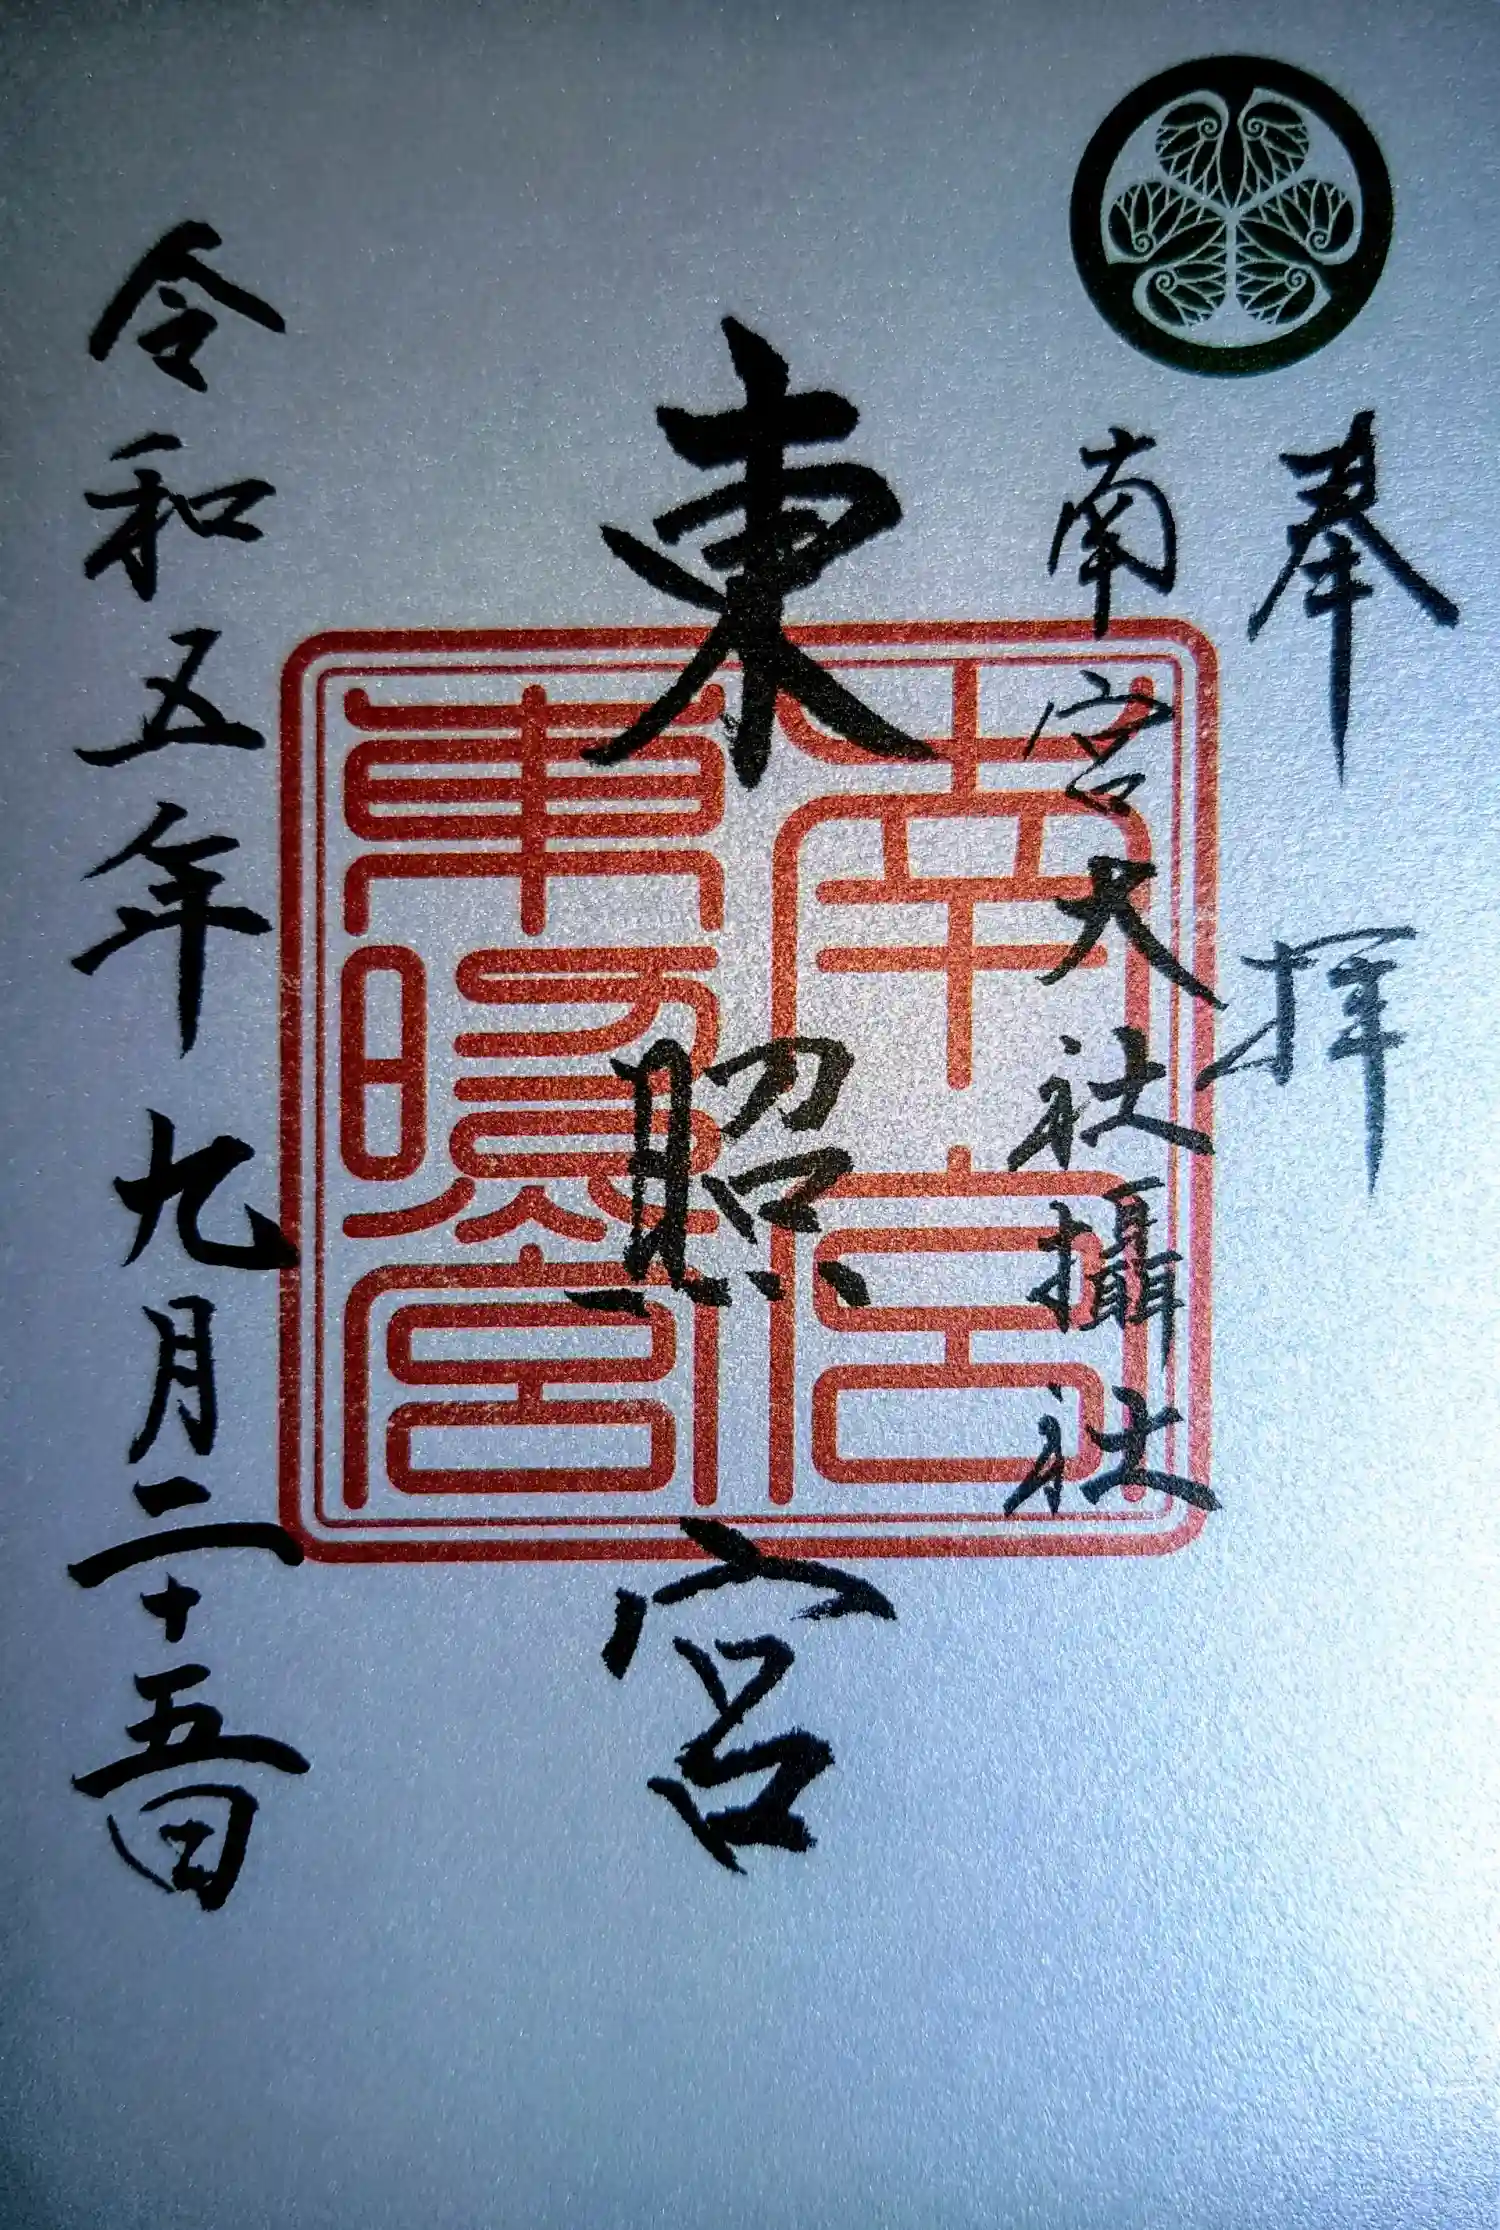 奉拝
南宮大社攝社
東照宮
南宮
東照宮
令和五年九月二十五日